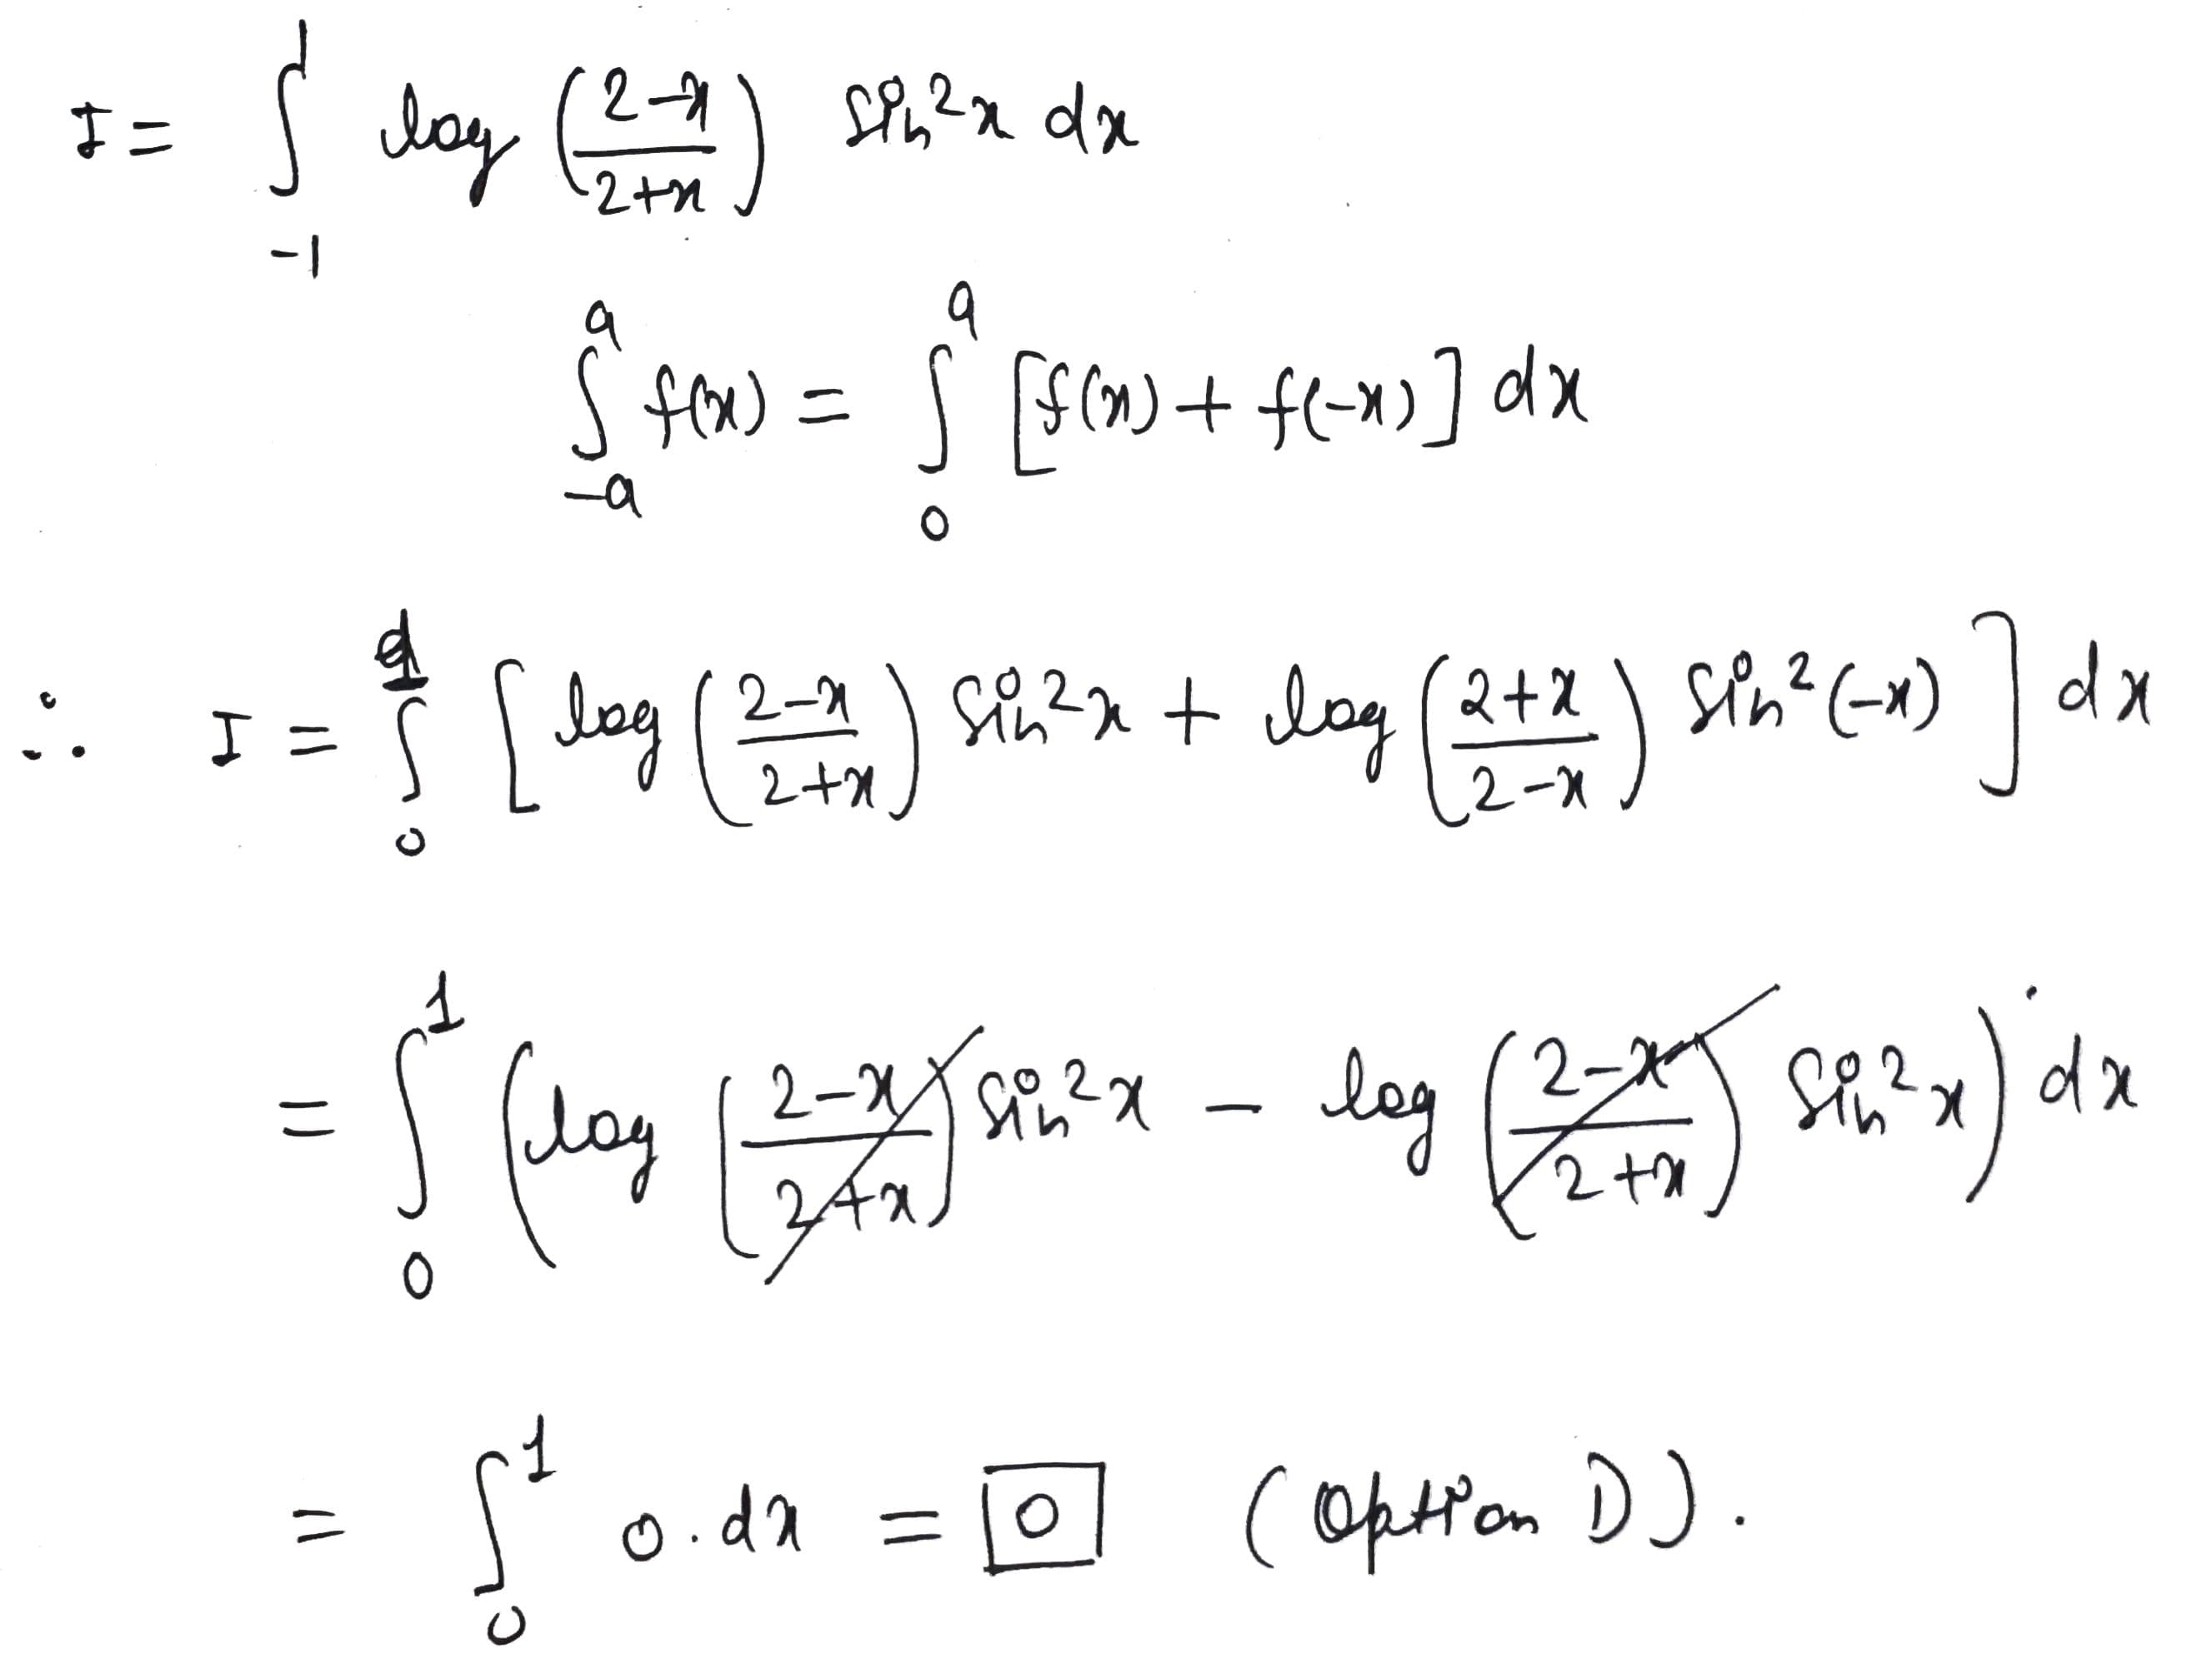 I = ∫_{-1}^{1} log (2-x / 2+x) sin²x dx
∫_{-a}^{a} f(x) = ∫_{0}^{a} [f(x) + f(-x)] dx
∴ I = ∫_{0}^{1} [ log (2-x / 2+x) sin²x + log (2+x / 2-x) sin²(-x) ] dx
= ∫_{0}^{1} (log (2-x / 2+x) sin²x - log (2-x / 2+x) sin²x) dx
= ∫_{0}^{1} 0. dx = 0 (Option D).